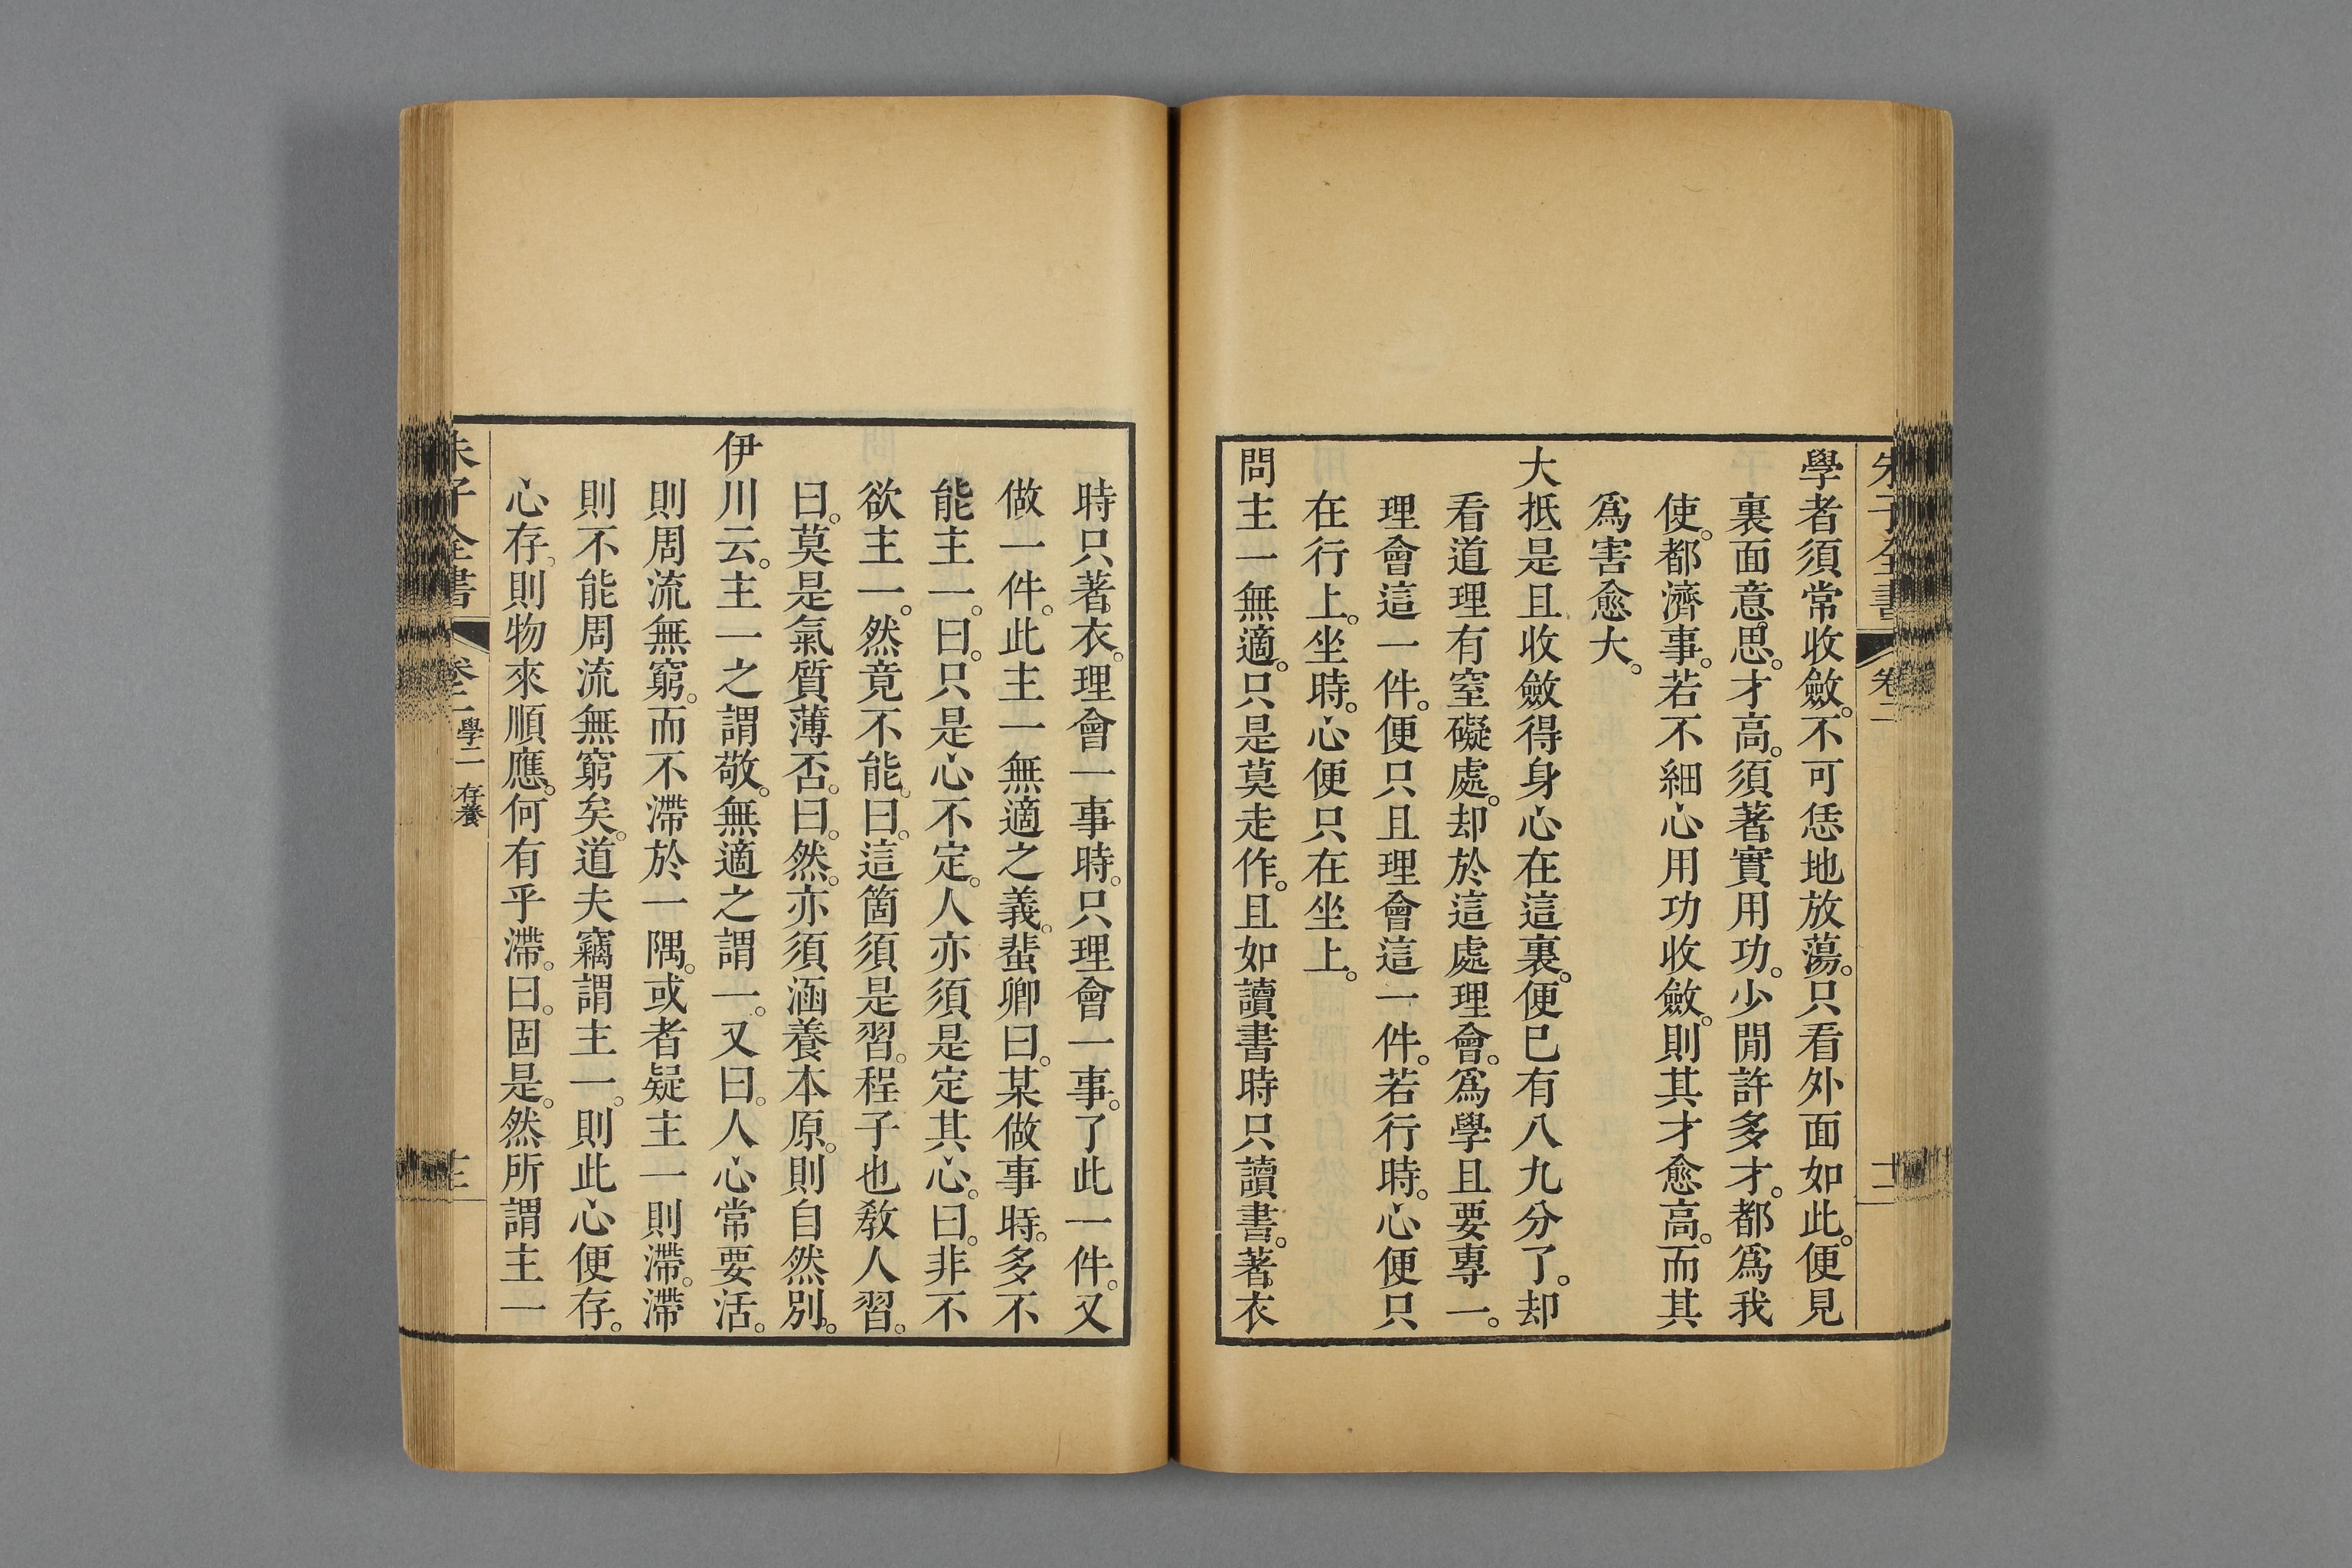 朱子全書 卷二 十二
學者須常收斂。不可恁地放蕩。只看外面如此。便見
裏面意思。才高。須著實用功。少閒許多才。都爲我
使。都濟事。若不細心用功收斂。則其才愈高。而其
爲害愈大。
大抵是且收斂得身心在這裏。便已有八九分了。却
看道理有窒礙處。却於這處理會。爲學且要專一。
理會這一件。便只且理會這一件。若行時。心便只
在行上。坐時。心便只在坐上。
問主一無適。只是莫走作。且如讀書時只讀書。著衣
時只著衣。理會一事時。只理會一事。了此一件。又
做一件。此主一無適之義。蜚卿曰。某做事時。多不
能主一。曰。只是心不定。人亦須是定其心。曰。非不
欲主一。然竟不能。曰。這箇須是習。程子也敎人習。
曰。莫是氣質薄否。曰。然。亦須涵養本原。則自然別。
伊川云。主一之謂敬。無適之謂一。又曰。人心常要活。
則周流無窮。而不滯於一隅。或者疑主一則滯。滯
則不能周流無窮矣。道夫竊謂主一。則此心便存。
心存。則物來順應。何有乎滯。曰。固是。然所謂主一
朱子全書 卷二 學二 存養